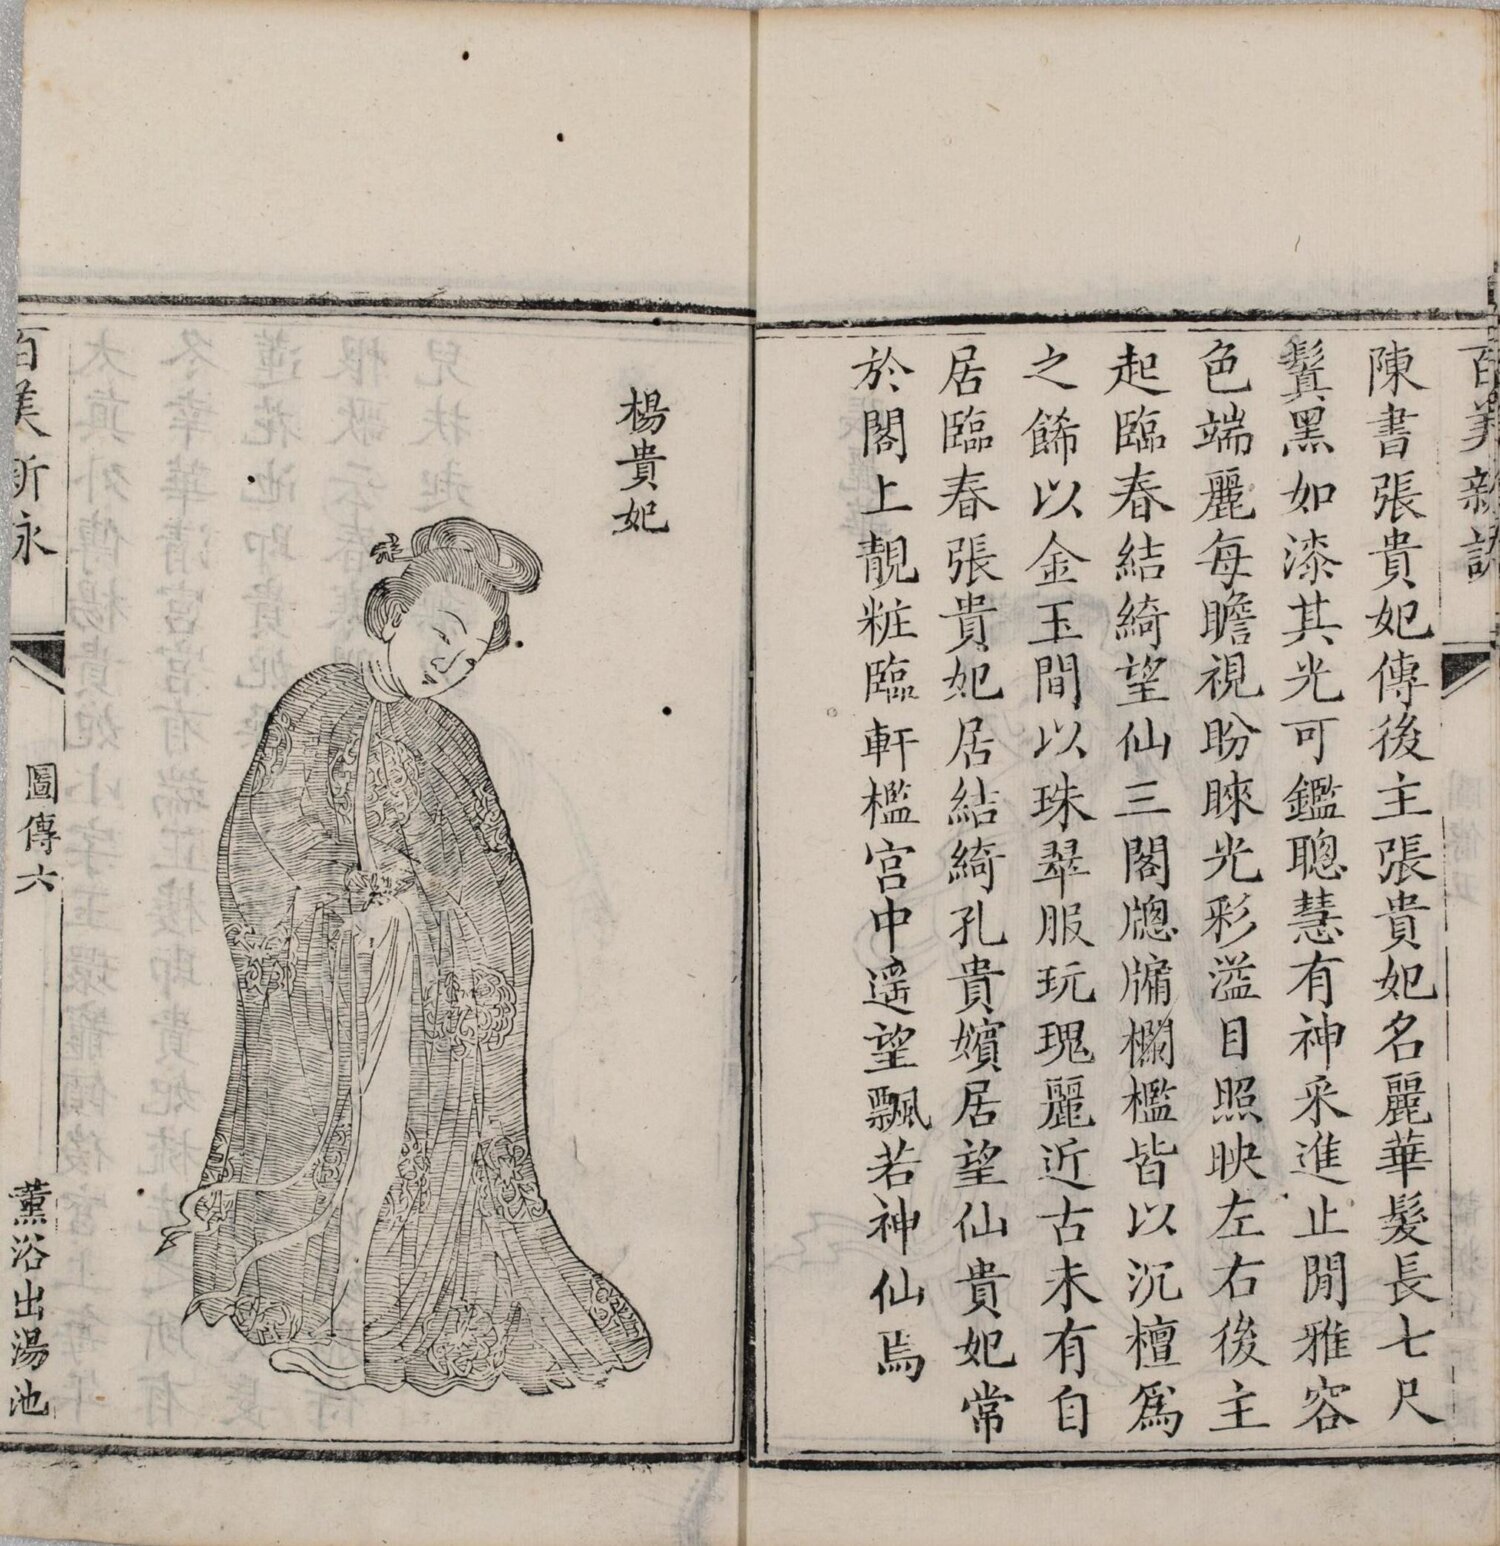 百美新詠
陳書張貴妃傳後主張貴妃名麗華髮長七尺
鬒黑如漆其光可鑑聰慧有神采進止閒雅容
色端麗每瞻視盼睞光彩溢目照映左右後主
起臨春結綺望仙三閣牎牗欄檻皆以沉檀爲
之餙以金玉間以珠翠服玩瑰麗近古未有自
居臨春張貴妃居結綺孔貴嬪居望仙貴妃常
於閣上靚粧臨軒檻宮中遥望飄若神仙焉
楊貴妃
百美新詠
圖傳六
薰浴出湯池